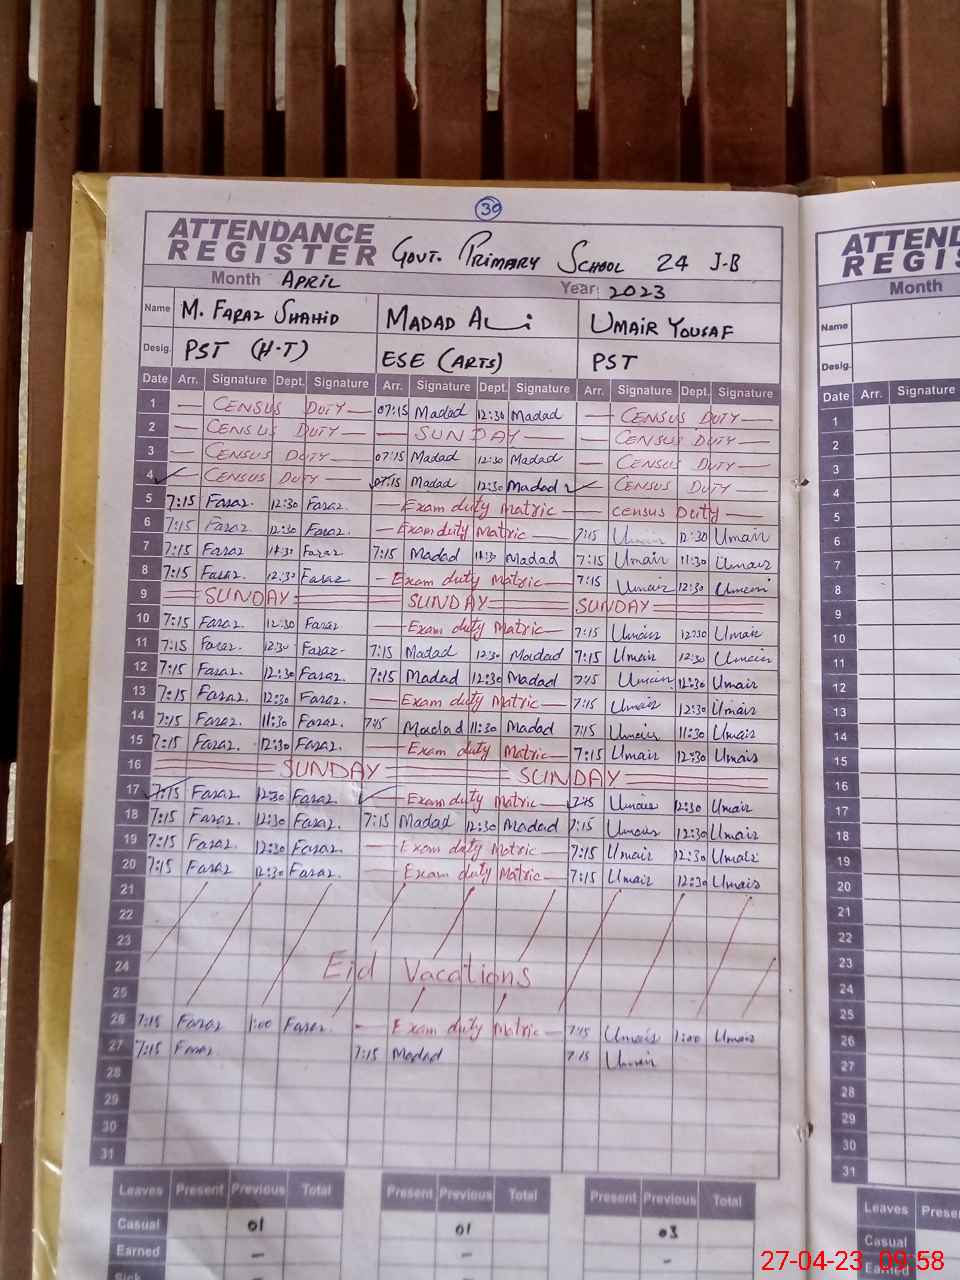 39
ATTENDANCE REGISTER GOVT. PRIMARY SCHOOL 24 J-B
Month APRIL Year: 2023
Name M. FARAZ SHAHID MADAD ALi UMAIR YOUSAF
Desig. PST (H-T) ESE (ARTS) PST
Date Arr. Signature Dept. Signature Arr. Signature Dept. Signature Arr. Signature Dept. Signature
1 — CENSUS DUTY — 07:15 Madad 12:30 Madad — CENSUS DUTY —
2 — CENSUS DUTY — — SUNDAY — — CENSUS DUTY —
3 — CENSUS DUTY — 07:15 Madad 12:30 Madad — CENSUS DUTY —
4 — CENSUS DUTY — 07:15 Madad 12:30 Madad — CENSUS DUTY —
5 7:15 Faraz. 12:30 Faraz. — Exam duty Matric — — CENSUS DUTY —
6 7:15 Faraz 12:30 Faraz. — Exam duty Matric — 7:15 Umair 12:30 Umair
7 7:15 Faraz 11:30 Faraz 7:15 Madad 11:30 Madad 7:15 Umair 11:30 Umair
8 7:15 Faraz. 12:30 Faraz — Exam duty Matric — 7:15 Umair 12:30 Umair
9 SUNDAY SUNDAY SUNDAY
10 7:15 Faraz. 12:30 Faraz — Exam duty Matric — 7:15 Umair 12:30 Umair
11 7:15 Faraz. 12:30 Faraz- 7:15 Madad 12:30 Madad 7:15 Umair 12:30 Umair
12 7:15 Faraz. 12:30 Faraz. 7:15 Madad 12:30 Madad 7:15 Umair 12:30 Umair
13 7:15 Faraz. 12:30 Faraz. — Exam duty Matric — 7:15 Umair 12:30 Umair
14 7:15 Faraz. 11:30 Faraz. 7:15 Madad 11:30 Madad 7:15 Umair 11:30 Umair
15 7:15 Faraz. 12:30 Faraz. — Exam duty Matric — 7:15 Umair 12:30 Umair
16 SUNDAY SUNDAY
17 7:15 Faraz 12:30 Faraz. — Exam duty Matric — 7:15 Umair 12:30 Umair
18 7:15 Faraz. 12:30 Faraz. 7:15 Madad 12:30 Madad 7:15 Umair 12:30 Umair
19 7:15 Faraz. 12:30 Faraz. — Exam duty Matric — 7:15 Umair 12:30 Umair
20 7:15 Faraz 12:30 Faraz. — Exam duty Matric — 7:15 Umair 12:30 Umair
21
22
23
24 Eid Vacations
25
26 7:15 Faraz 1:00 Faraz. — Exam duty Matric — 7:15 Umair 1:00 Umair
27 7:15 Faraz 7:15 Madad 7:15 Umair
28
29
30
31
Leaves Present Previous Total Present Previous Total Present Previous Total
Casual 01 01 03
Earned - - -
Sick
ATTEND
REGIS
Month
Name
Desig.
Date Arr. Signature
1
2
3
4
5
6
7
8
9
10
11
12
13
14
15
16
17
18
19
20
21
22
23
24
25
26
27
28
29
30
31
Leaves Prese
Casual
Earned
27-04-23 09:58